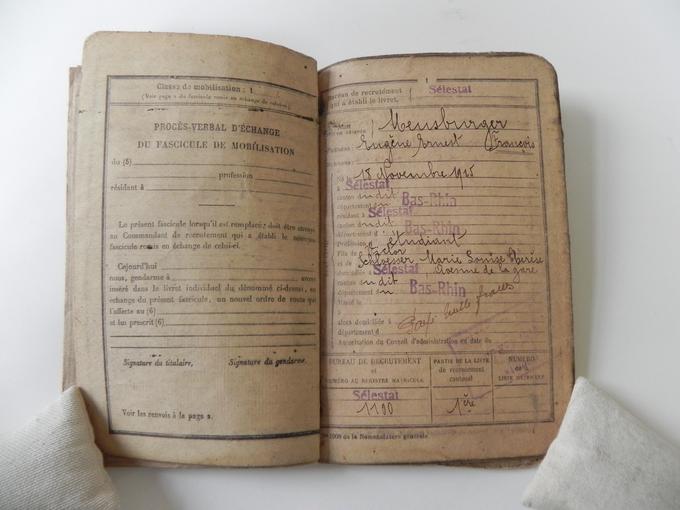 Classe de mobilisation : 1
(Voir page 2 du fascicule remis en échange de celui-ci.)
PROCÈS-VERBAL D'ÉCHANGE
DU FASCICULE DE MOBILISATION
du (5)
profession
résidant à
Le présent fascicule lorsqu'il est remplacé doit être envoyé
au Commandant de recrutement qui a établi le nouveau
fascicule remis en échange de celui-ci.
Cejourd'hui
nous, gendarme à avons
inséré dans le livret individuel du dénommé ci-dessus, en
échange du présent fascicule, un nouvel ordre de route qui
l'affecte au (6)
et lui prescrit (6)
Signature du titulaire, Signature du gendarme,
Voir les renvois à la page 2.
1
Bureau de recrutement
qui a établi le livret. Sélestat
Meusburger
Eugène Ernest François
18 Novembre 1915
à Sélestat
canton dudit
département du Bas-Rhin
résidant à Sélestat
canton dudit
département d Bas-Rhin
Profession d étudiant
Fils de Victor
et de Schloesser Marie Louise Thérèse
Sélestat Avenue de la gare
canton dudit
département du Bas-Rhin
Marié le
à
alors domiciliée à
département d
Autorisation du Conseil d'administration en date du
BUREAU DE RECRUTEMENT
et
NUMÉRO AU REGISTRE MATRICULE
PARTIE DE LA LISTE
de recrutement
cantonal
NUMÉRO
LISTE
Sélestat
1100
1ère
de la Nomenclature générale.